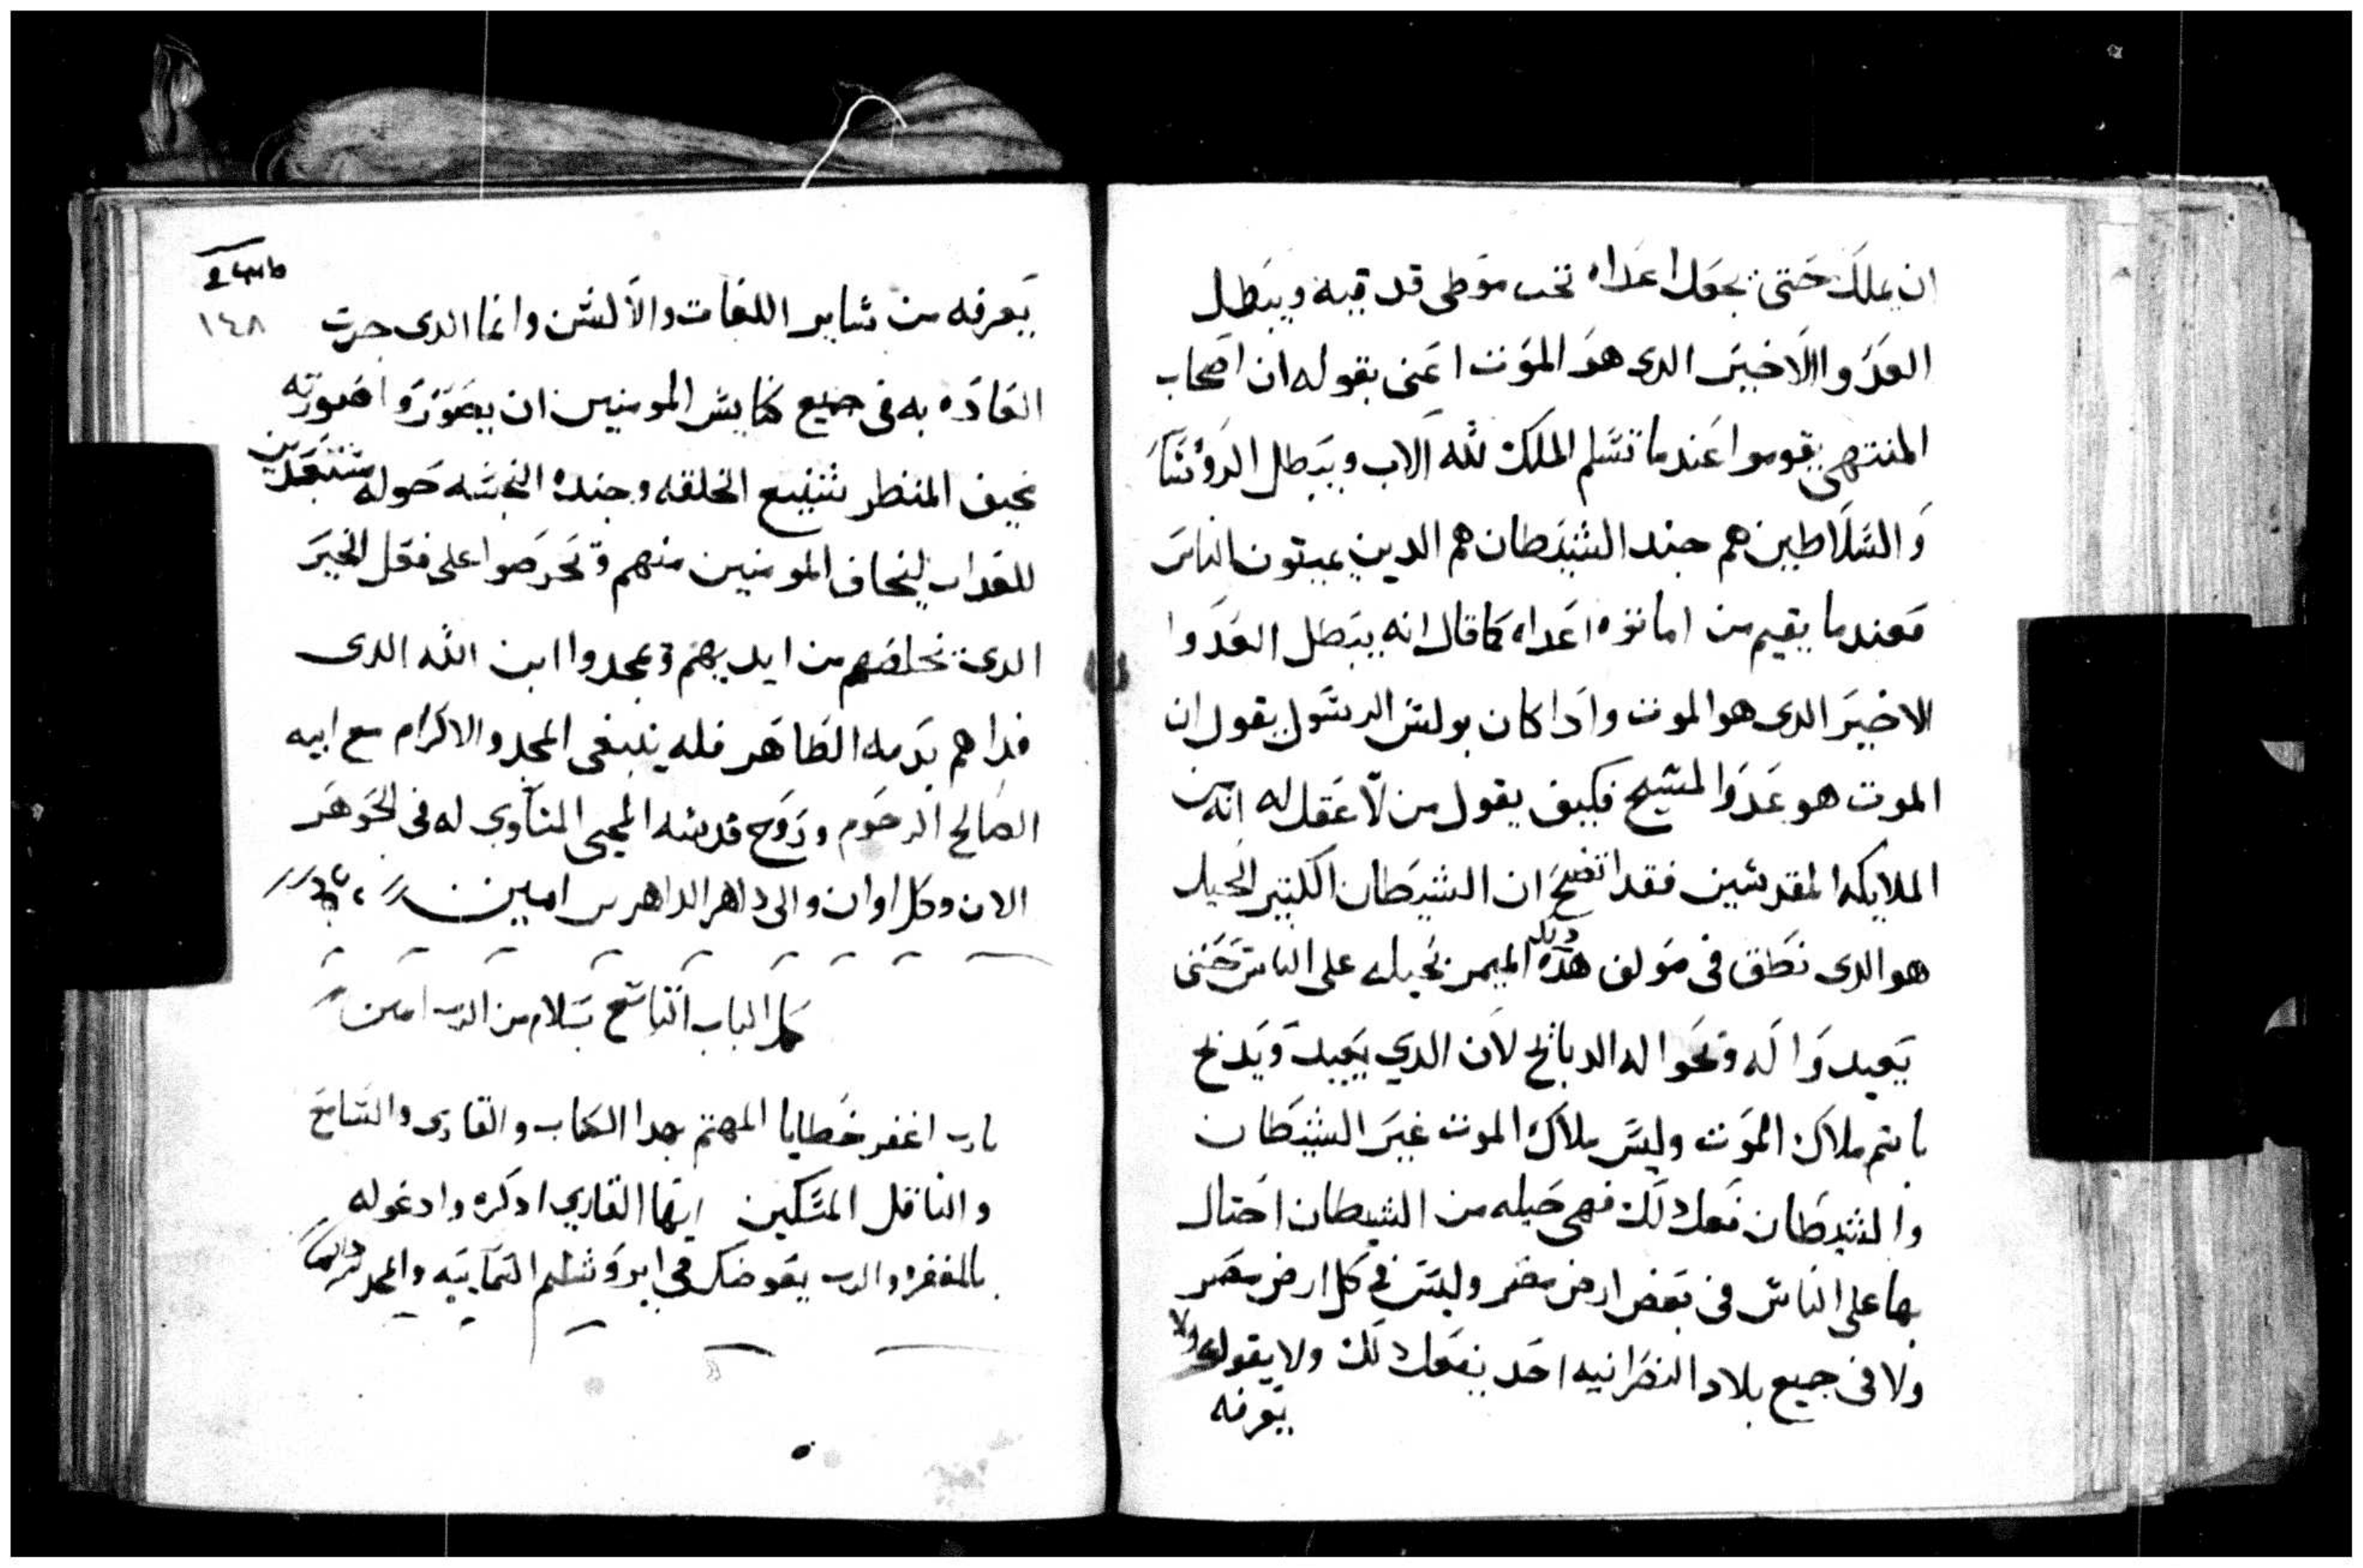 ان يملك حتى يجعل اعداه تحت موطى قدميه ويبطل
العدوا الاخير الدى هو الموت اعنى بقوله ان اصحاب
المنتهى يقوموا عندما تسلم الملك لله الاب ويبطل الروسا
والسلاطين هم جند الشيطان هم الدين يميتون الناس
فعندما يقيم من اماتوه اعداه كما قال انه يبطل العدوا
الاخير الدى هو الموت وادا كان بولس الرسول يقول ان
الموت هو عدوا المسيح فكيف يقول من لا عقل له انه من
الملايكه المقدسين فقد اتضح ان الشيطان الكتير الحيل
هو الدى نطق فى مولف هده الميمر بحيله على الناس حتى
يعيدوا له وينحوا له الدبايح لان الدي يعيد ويدبح
باسم ملاك الموت وليس ملاك الموت غير الشيطان
والشيطان فعل دلك فهى حيله من الشيطان احتال
بها على الناس فى بعض ارض مصر وليس في كل ارض مصر
ولا فى جميع بلاد النصرانيه احد يفعل دلك ولا يقوله ولا
يعرفه
١٤٨
يعرفه من ساير اللغات والالسن وانما الدى جرت
العاده به فى جميع كنايس المومنين ان يصوروا صورته
مخيف المنظر شنيع الخلقه وجنده النجسه حوله مستعدين
للعداب ليخاف المومنين منهم ويحرصوا على فعل الخير
الدى يخلصهم من ايديهم ويمجدوا ابن الله الدى
فداهم بدمه الطاهر فله ينبغى المجد والاكرام مع ابيه
الصالح الرحوم وروح قدسه المحيى المساوى له فى الجوهر
الان وكل اوان والى داهر الداهرين امين
كمل الباب التاسع بسلام من الرب امين
يارب اغفر خطايا المهتم بهدا الكتاب والقارى والسامع
والناقل المسكين ايها القاري ادكره وادعوله
بالمغفره والرب يعوضك فى ايروشليم السماييه والمجد لله دايما